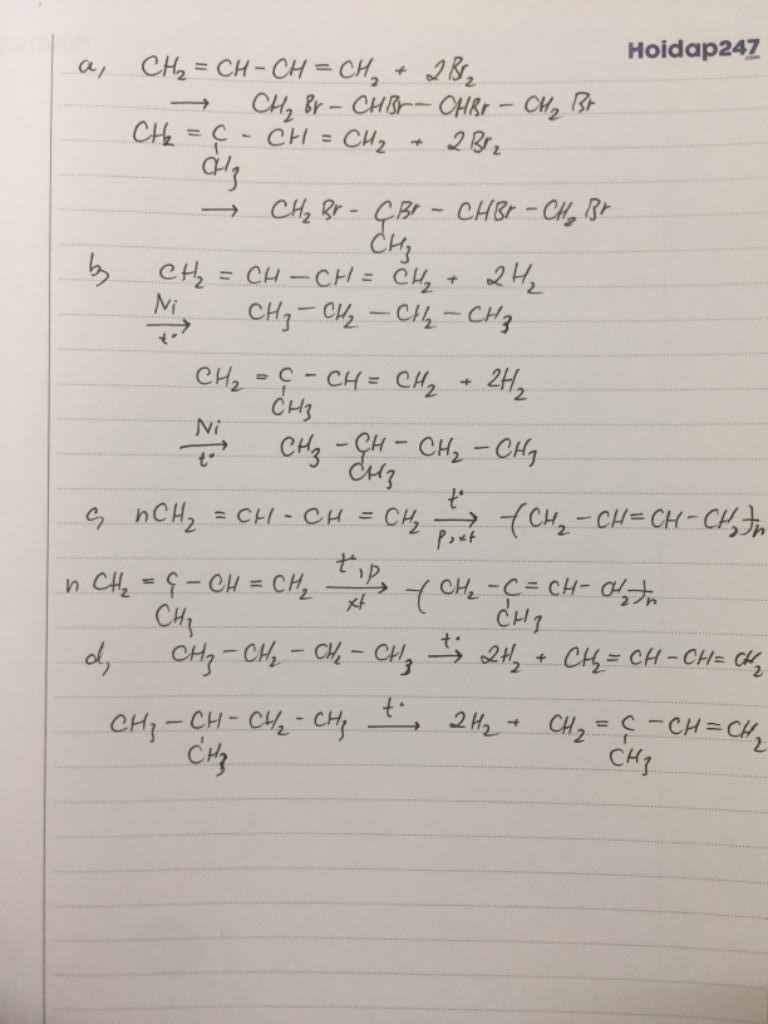 Hoidap247.com
a, CH₂ = CH - CH = CH₂ + 2Br₂
⟶ CH₂Br - CHBr - CHBr - CH₂Br
CH₂ = C - CH = CH₂ + 2Br₂
CH₃
⟶ CH₂Br - CBr - CHBr - CH₂Br
CH₃
b, CH₂ = CH - CH = CH₂ + 2H₂
Ni
⟶ CH₃ - CH₂ - CH₂ - CH₃
t°
CH₂ = C - CH = CH₂ + 2H₂
CH₃
Ni
⟶ CH₃ - CH - CH₂ - CH₃
t°
CH₃
c, nCH₂ = CH - CH = CH₂ t° ⟶ p, xt -(CH₂ - CH = CH - CH₂)-n
n CH₂ = C - CH = CH₂ t°, p ⟶ xt -(CH₂ - C = CH - CH₂)-n
CH₃ CH₃
d, CH₃ - CH₂ - CH₂ - CH₃ t° ⟶ 2H₂ + CH₂ = CH - CH = CH₂
CH₃ - CH - CH₂ - CH₃ t° ⟶ 2H₂ + CH₂ = C - CH = CH₂
CH₃ CH₃